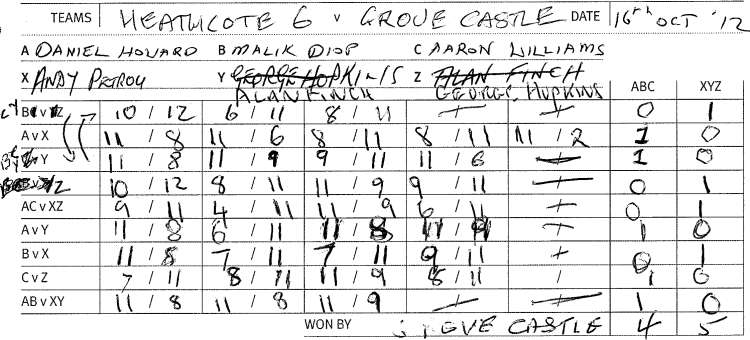 TEAMS HEATHCOTE 6 V GROVE CASTLE DATE 16th OCT '12
A DANIEL HOWARD B MALIK DIOP C AARON WILLIAMS
X ANDY PETROU Y GEORGE HOPKINS Z ALAN FINCH
ALAN FINCH GEORGE HOPKINS ABC XYZ
10 / 12 6 / 11 8 / 11 0 1
A v X 11 / 8 11 / 6 8 / 11 8 / 11 11 / 2 1 0
Y 11 / 8 11 / 9 9 / 11 11 / 6 1 0
Z 10 / 12 8 / 11 11 / 9 9 / 11 0 1
AC v XZ 9 / 11 4 / 11 11 / 9 6 / 11 0 1
A v Y 11 / 8 6 / 11 11 / 8 11 / 1 0
B v X 11 / 8 7 / 11 7 / 11 9 / 11 0 1
C v Z 7 / 11 8 / 11 11 / 9 8 / 11 / 1 0
AB v XY 11 / 8 11 / 8 11 / 9 1 0
WON BY CASTLE 4 5